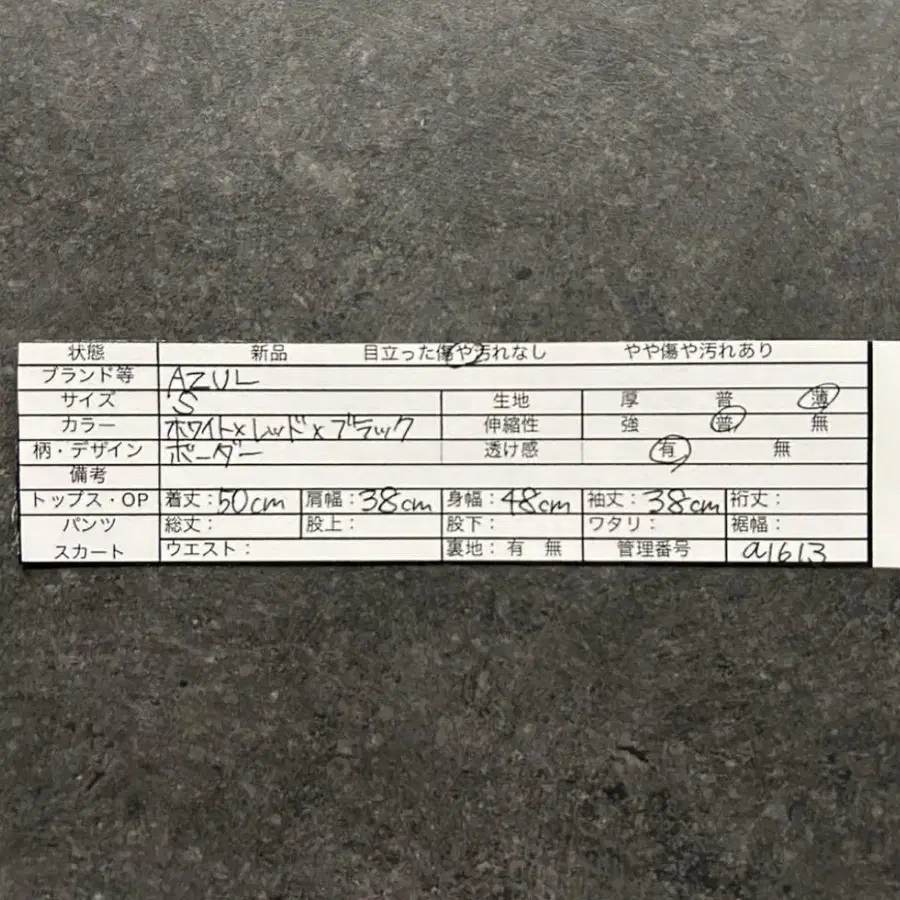 状態 新品 目立った傷や汚れなし やや傷や汚れあり
ブランド等 AZUL
サイズ S 生地 厚 普 薄
カラー ホワイト×レッド×ブラック 伸縮性 強 普 無
柄・デザイン ボーダー 透け感 有 無
備考
トップス・OP 着丈:50cm 肩幅:38cm 身幅:48cm 袖丈:38cm 裄丈:
パンツ 総丈: 股上: 股下: ワタリ: 裾幅:
スカート ウエスト: 裏地: 有 無 管理番号 a1613